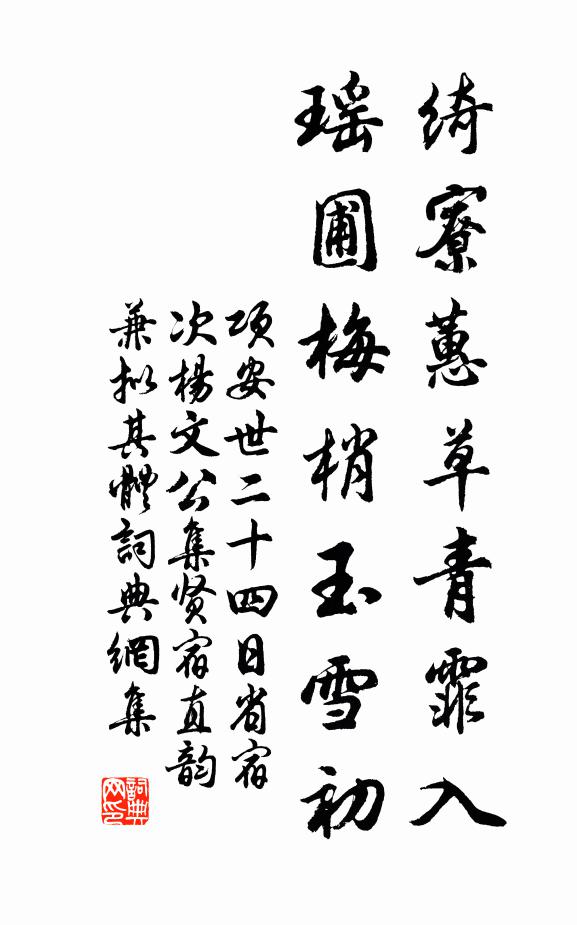 绮寮蕙草青霏入
瑶圃梅梢玉雪初
项安世二十四日省宿
次杨文公集贤宿直韵
兼拟其體詞典網集
詞典
网印